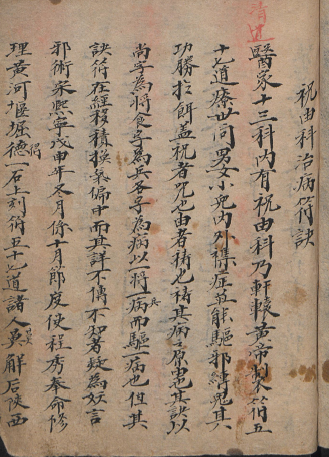 祝由科治病符訣
醫家十三科內有祝由科乃軒轅黃帝製符五
十七道療世间男女小兒內外襍症並能驅邪縛鬼其
功勝於餌盖祝者咒也由者禱也禱其病之原也其訣以
尚字為將食字為兵各字為病以一將一兵病而驅一病也但其
訣符在經移積換氣偏中而其詳不傳不知者疑為妖言
邪術宋熙寧戊申年冬月係十月節度使程秀奉命修
理黃河堰掘得一石上刻符五十七道諸人莫解后陝西